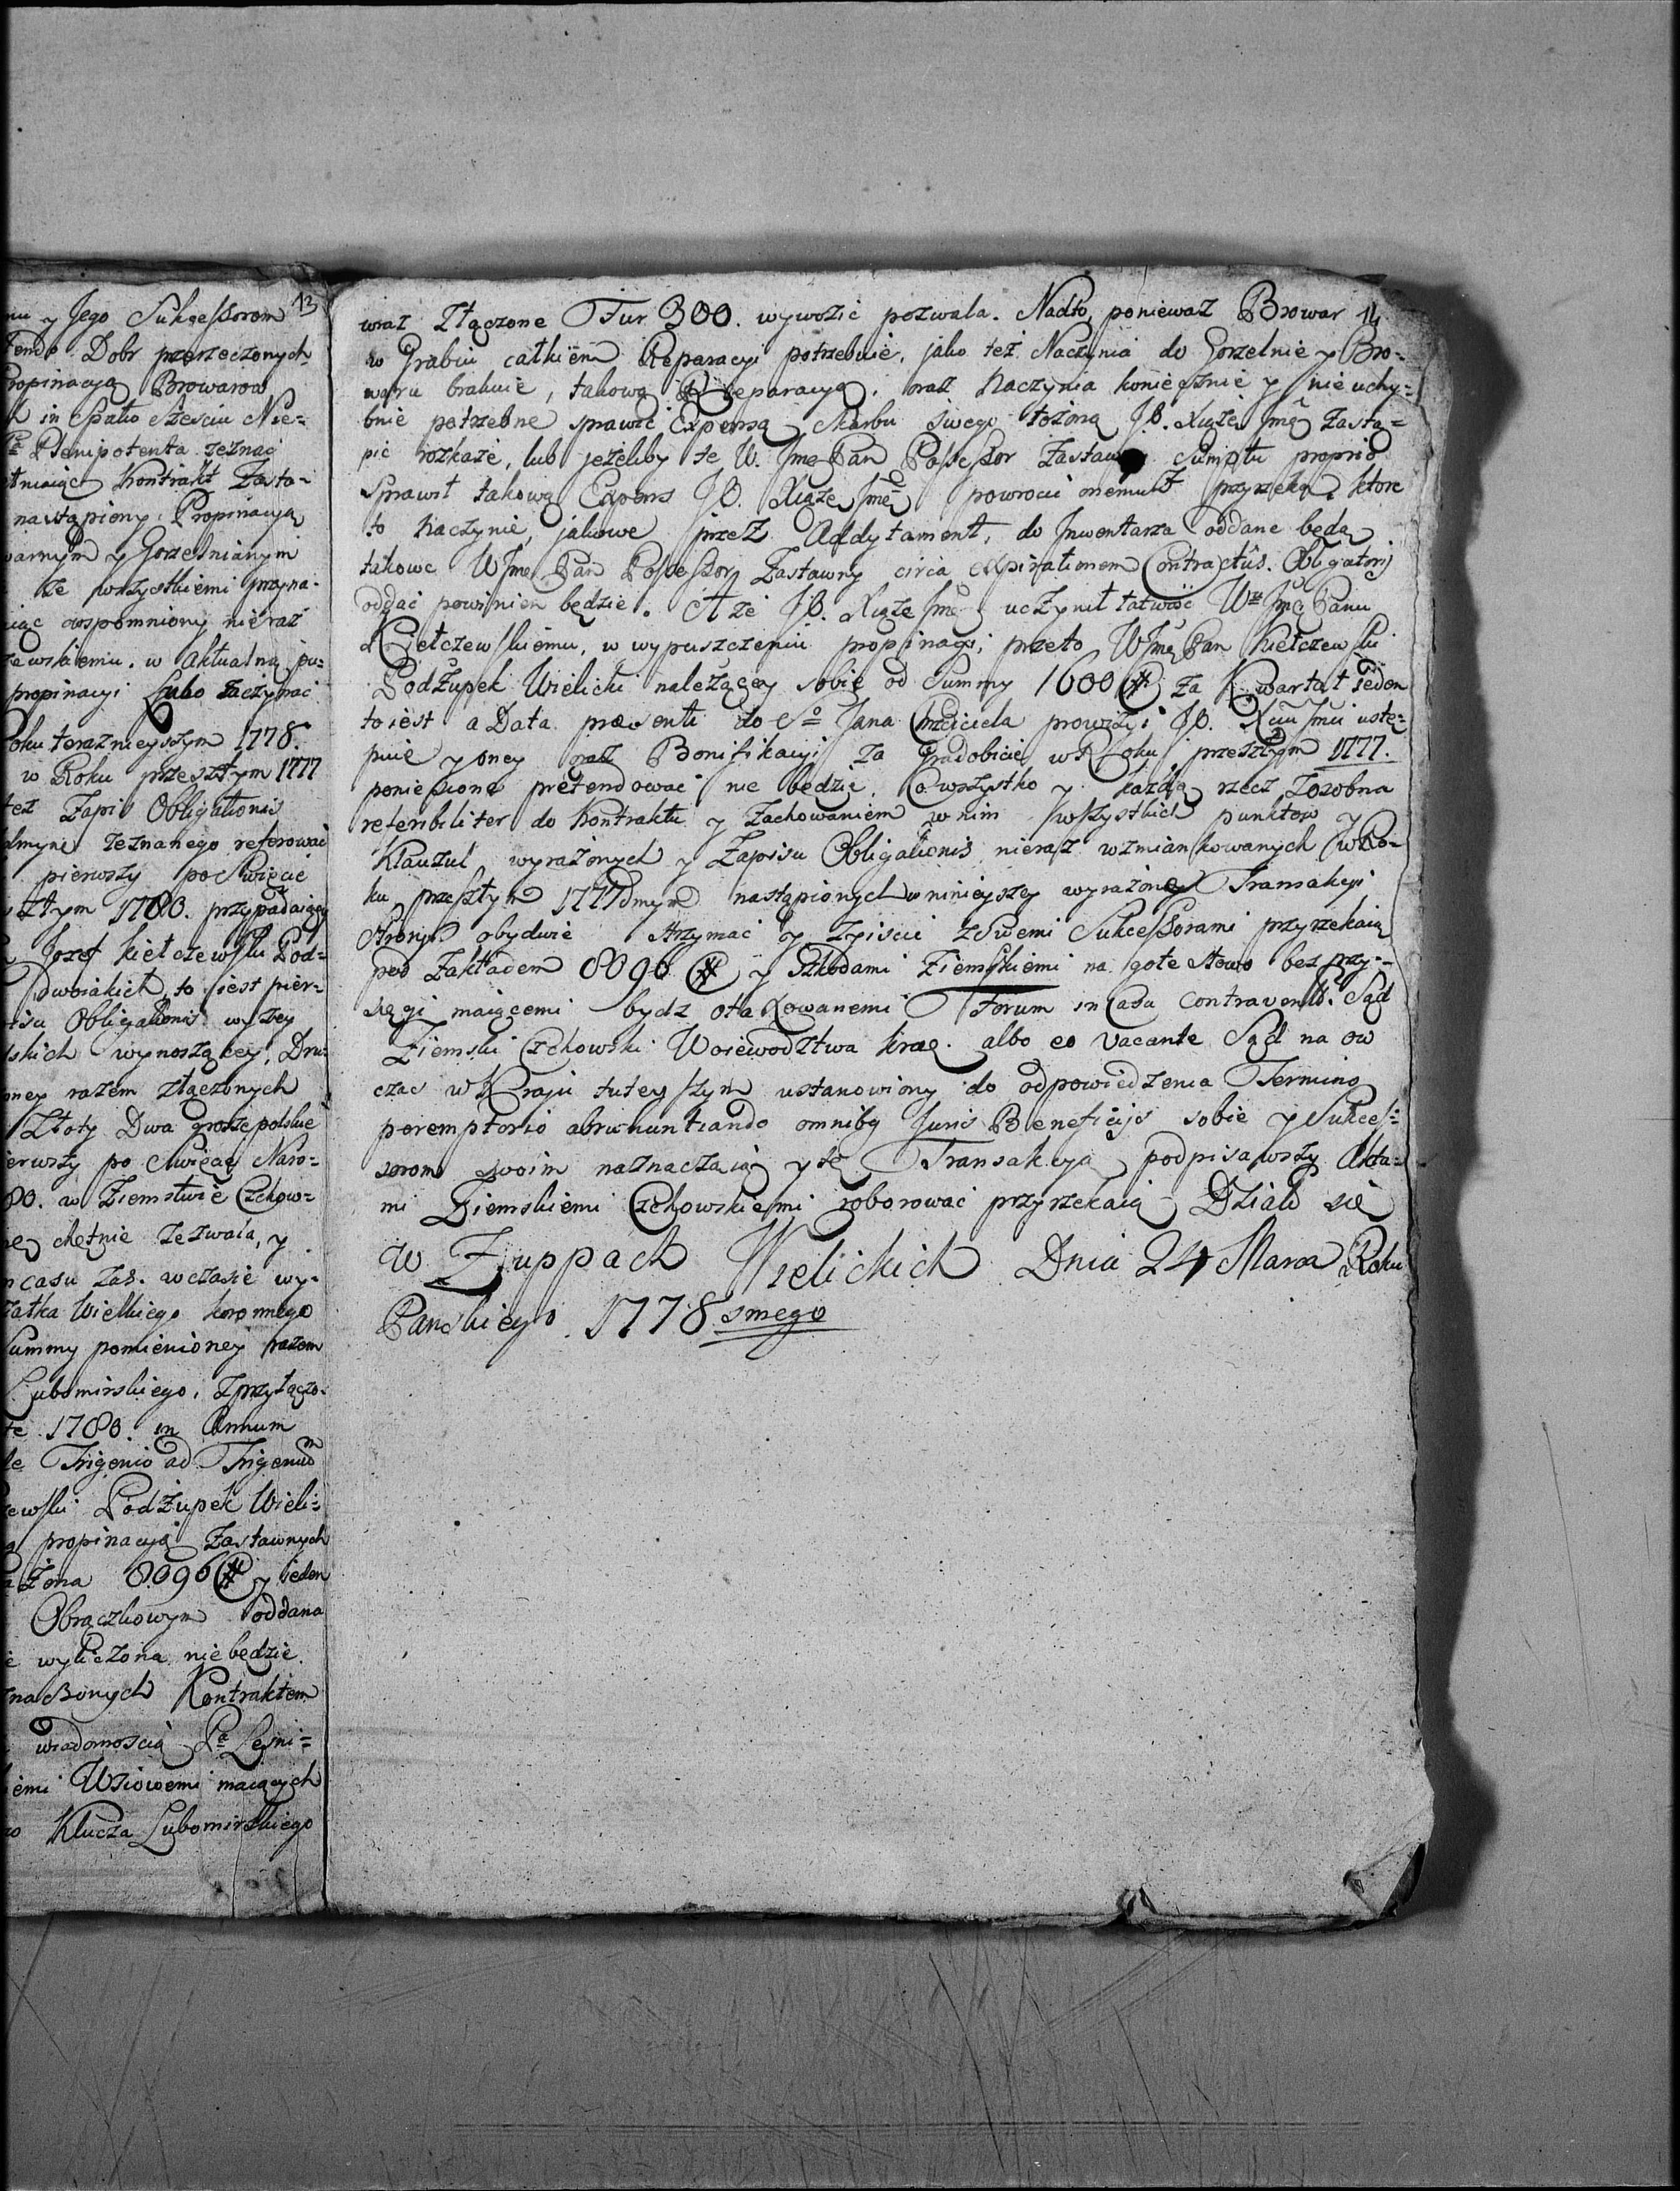 13
mu y Jego Sukcessorom
Dobr przerzeczonych
Propinacyą Browarow
in Spatio sześciu Nie-
Plenipotenta zeznać
Kontrakt Zasta-
nastąpiony. Propinacyą
y Gorzelnianym
ze wszystkiemi przyna-
wspomniony nieraz
w Aktualną
propinacyi Lubo zaczynać
Roku teraznieyszym 1778.
w Roku przeszłym 1777
też Zapis Obligationis
zeznanego referować
pierwszy po Swięcie
1780. przypadaiący
Jozef Kiełczewski Pod=
dwoiakich to iest pier-
Obligationis wyżey
wynoszącey, Dru-
razem złączonych
Złoty Dwa grosze polskie
pierwszy po Swięcie Naro-
80. w Ziemstwie Czchow-
chętnie zezwala, y
casu zaś. w czasie wy-
Wielkiego koronnego
Summy pomienioney razem
Lubomirskiego, z przyłączo-
1780. in Annum
de Trigenio ad Trigenium
Podżupek Wieli=
propinacyą Zastawnych
8096 # y ieden
Obrączkowym oddana
wyliczona nie będzie.
Kontraktem
wiadomoscią Leśni=
maiących
Klucza Lubomirskiego
14
wraz złączone Fur 300. wywozić pozwala. Nadto, ponieważ Browar
w Grabiu całkiem Reparacyi potrzebuie, jako też Naczynia do Gorzelnie y Bro-
waru brakuie, takową reparacyą, oraz Naczynia koniecznie y nieuchy=
bnie potrzebne sprawić Expensą Skarbu swego łożoną J.O. Xiąże Jmć zastą=
pić rozkaże, lub jeżeliby te W. Jmć Pan Possessor Zastawny Sumptu proprio
Sprawił takową Expens J.O. Xiąże Jmć powrocić onemuż przyrzeka, ktore
to Naczynie, jakowe przez Addytament, do Jnwentarza oddane będą
takowe WJmć Pan Possessor Zastawny circa expirationem Contractûs Obligatorij
oddać powinien będzie. A że J.O. Xiąże Jmć uczynił łatwość Wu Jmć Panu
Kiełczewskiemu, w wypuszczeniu propinacyi, przeto WJmć Pan Kiełczewski
Podżupek Wielicki należącey sobie od Summy 1600 # za Kwartał ieden
to iest a Data præsenti do So Jana Chrzciciela prowizyi J.O. Xciu Jmci ustę-
puie y oney oraz Bonifikacyi za Gradobicie w Roku przeszłym 1777.
poniesione pretendować nie będzie. Co wszystko y każdą rzecz zosobna
referibiliter do Kontraktu y Zachowaniem w nim wszystkich punktow y
Klauzul wyrażonych y Zapisu Obligationis nieraz wzmiankowanych w Ro-
ku przeszłym 1777dmym nastąpionych w ninieyszey wyrażoney Transakcyi
Strony obydwie strzymać y ziscić z Swemi Sukcessorami przyrzekaią
pod Zakładem 8096 # y Szkodami Ziemskiemi na gołe słowo bez przy-
sięgi maiącemi bydz otaxowanemi Forum in Casu contravent: Sąd
Ziemski Czchowski Woiewodztwa Krag. albo eo vacante Sąd na ow
czas w Kraju tuteyszym ustanowiony do odpowiedzenia Termino
peremptorio abrenuntiando omnibg Juris Beneficijs sobie y Sukces=
sorom swoim naznaczaią y tę Transakcyą podpisawszy Akta-
mi Ziemskiemi Czchowskiemi roborować przyrzekaią Działo się
w Zuppach Wielickich Dnia 24 Marca Roku
Panskiego 1778 smego